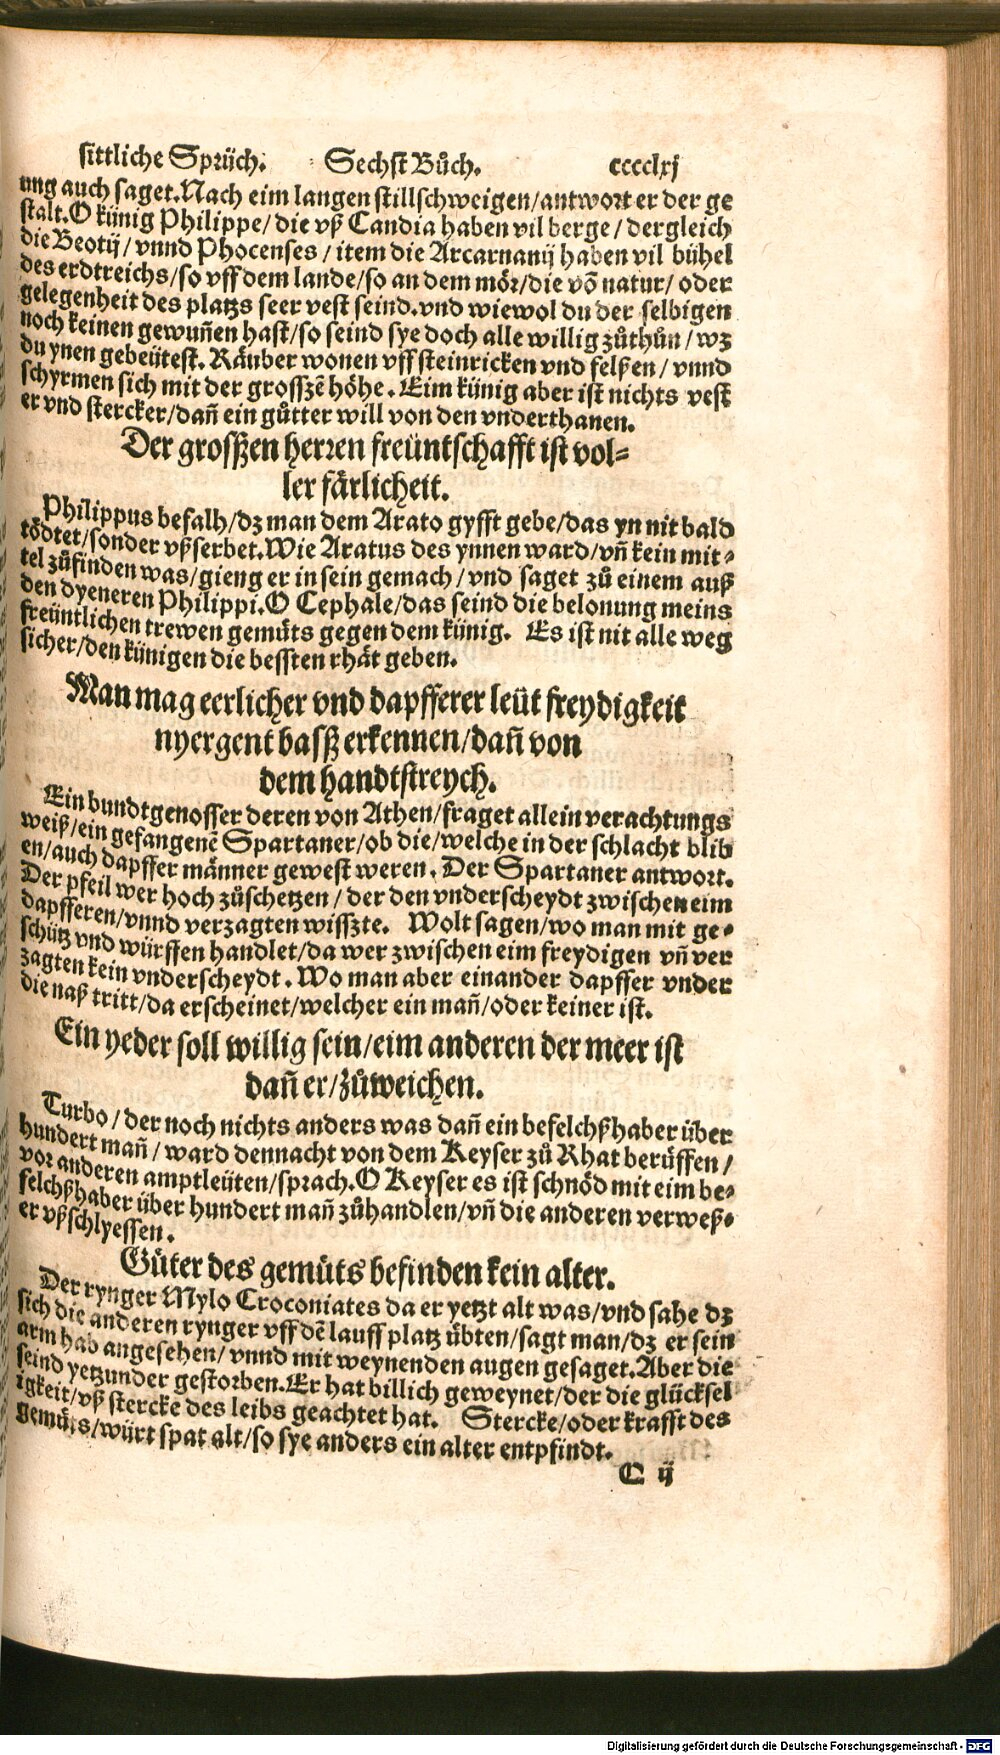 sittliche Sprüch. Sechst Bůch. cccclxj
ung auch saget. Nach eim langen stillschweigen/antwort er der ge
stalt. O künig Philippe/ die vß Candia haben vil berge/ dergleich
die Beotij/ vnnd Phocenses/ item die Arcarnanij haben vil bühel
des erdtreichs/so vff dem lande/so an dem mör/die võ natur/ oder
gelegenheit des platzs seer vest seind. vnd wiewol du der selbigen
noch keinen gewuñen hast/so seind sye doch alle willig zůthůn/ wz
du ynen gebeütest. Räuber wonen vff steinricken vnd felßen/ vnnd
schyrmen sich mit der grosszẽ höhe. Eim künig aber ist nichts vest
er vnd stercker/dañ ein gůtter will von den vnderthanen.
Der groszßen herren freüntschafft ist vol=
ler färlicheit.
Philippus befalh/dz man dem Arato gyfft gebe/das yn nit bald
tödtet/sonder vßserbet. Wie Aratus des ynnen ward/vñ kein mit=
tel zůfinden was/gieng er in sein gemach/vnd saget zů einem auß
den dyeneren Philippi. O Cephale/das seind die belonung meins
freüntlichen trewen gemüts gegen dem künig. Es ist nit alle weg
sicher/den künigen die bessten rhät geben.
Man mag eerlicher vnd dapfferer leüt freydigkeit
nyergent basß erkennen/dañ von
dem handtstreych.
Ein bundtgenosser deren von Athen/fraget allein verachtungs
weiß/ein gefangenẽ Spartaner/ob die/welche in der schlacht blib
en/auch dapffer männer gewest weren. Der Spartaner antwort.
Der pfeil wer hoch zůschetzen/ der den vnderscheydt zwischen eim
dapfferen/vnnd verzagten wisszte. Wolt sagen/wo man mit ge=
schütz vnd würffen handlet/da wer zwischen eim freydigen vñ ver
zagten kein vnderscheydt. Wo man aber einander dapffer vnder
die naß tritt/da erscheinet/welcher ein mañ/oder keiner ist.
Ein yeder soll willig sein/eim anderen der meer ist
dañ er/zůweichen.
Turbo/der noch nichts anders was dañ ein befelchßhaber über
hundert mañ/ ward dennacht von dem Keyser zů Rhat berüffen/
vor anderen amptleüten/sprach. O Keyser es ist schnöd mit eim be=
felchßhaber über hundert mañ zůhandlen/vñ die anderen verweß=
er vßschlyessen.
Güter des gemüts befinden kein alter.
Der rynger Mylo Croconiates da er yetzt alt was/vnd sahe dz
sich die anderen rynger vff dẽ lauff platz übten/sagt man/dz er sein
arm hab angesehen/ vnnd mit weynenden augen gesaget. Aber die
seind yetzunder gestorben. Er hat billich geweynet/der die glücksel
igkeit/vß stercke des leibs geachtet hat. Stercke/oder krafft des
gemüts/würt spat alt/so sye anders ein alter entpfindt.
C ij
Digitalisierung gefördert durch die Deutsche Forschungsgemeinschaft - DFG